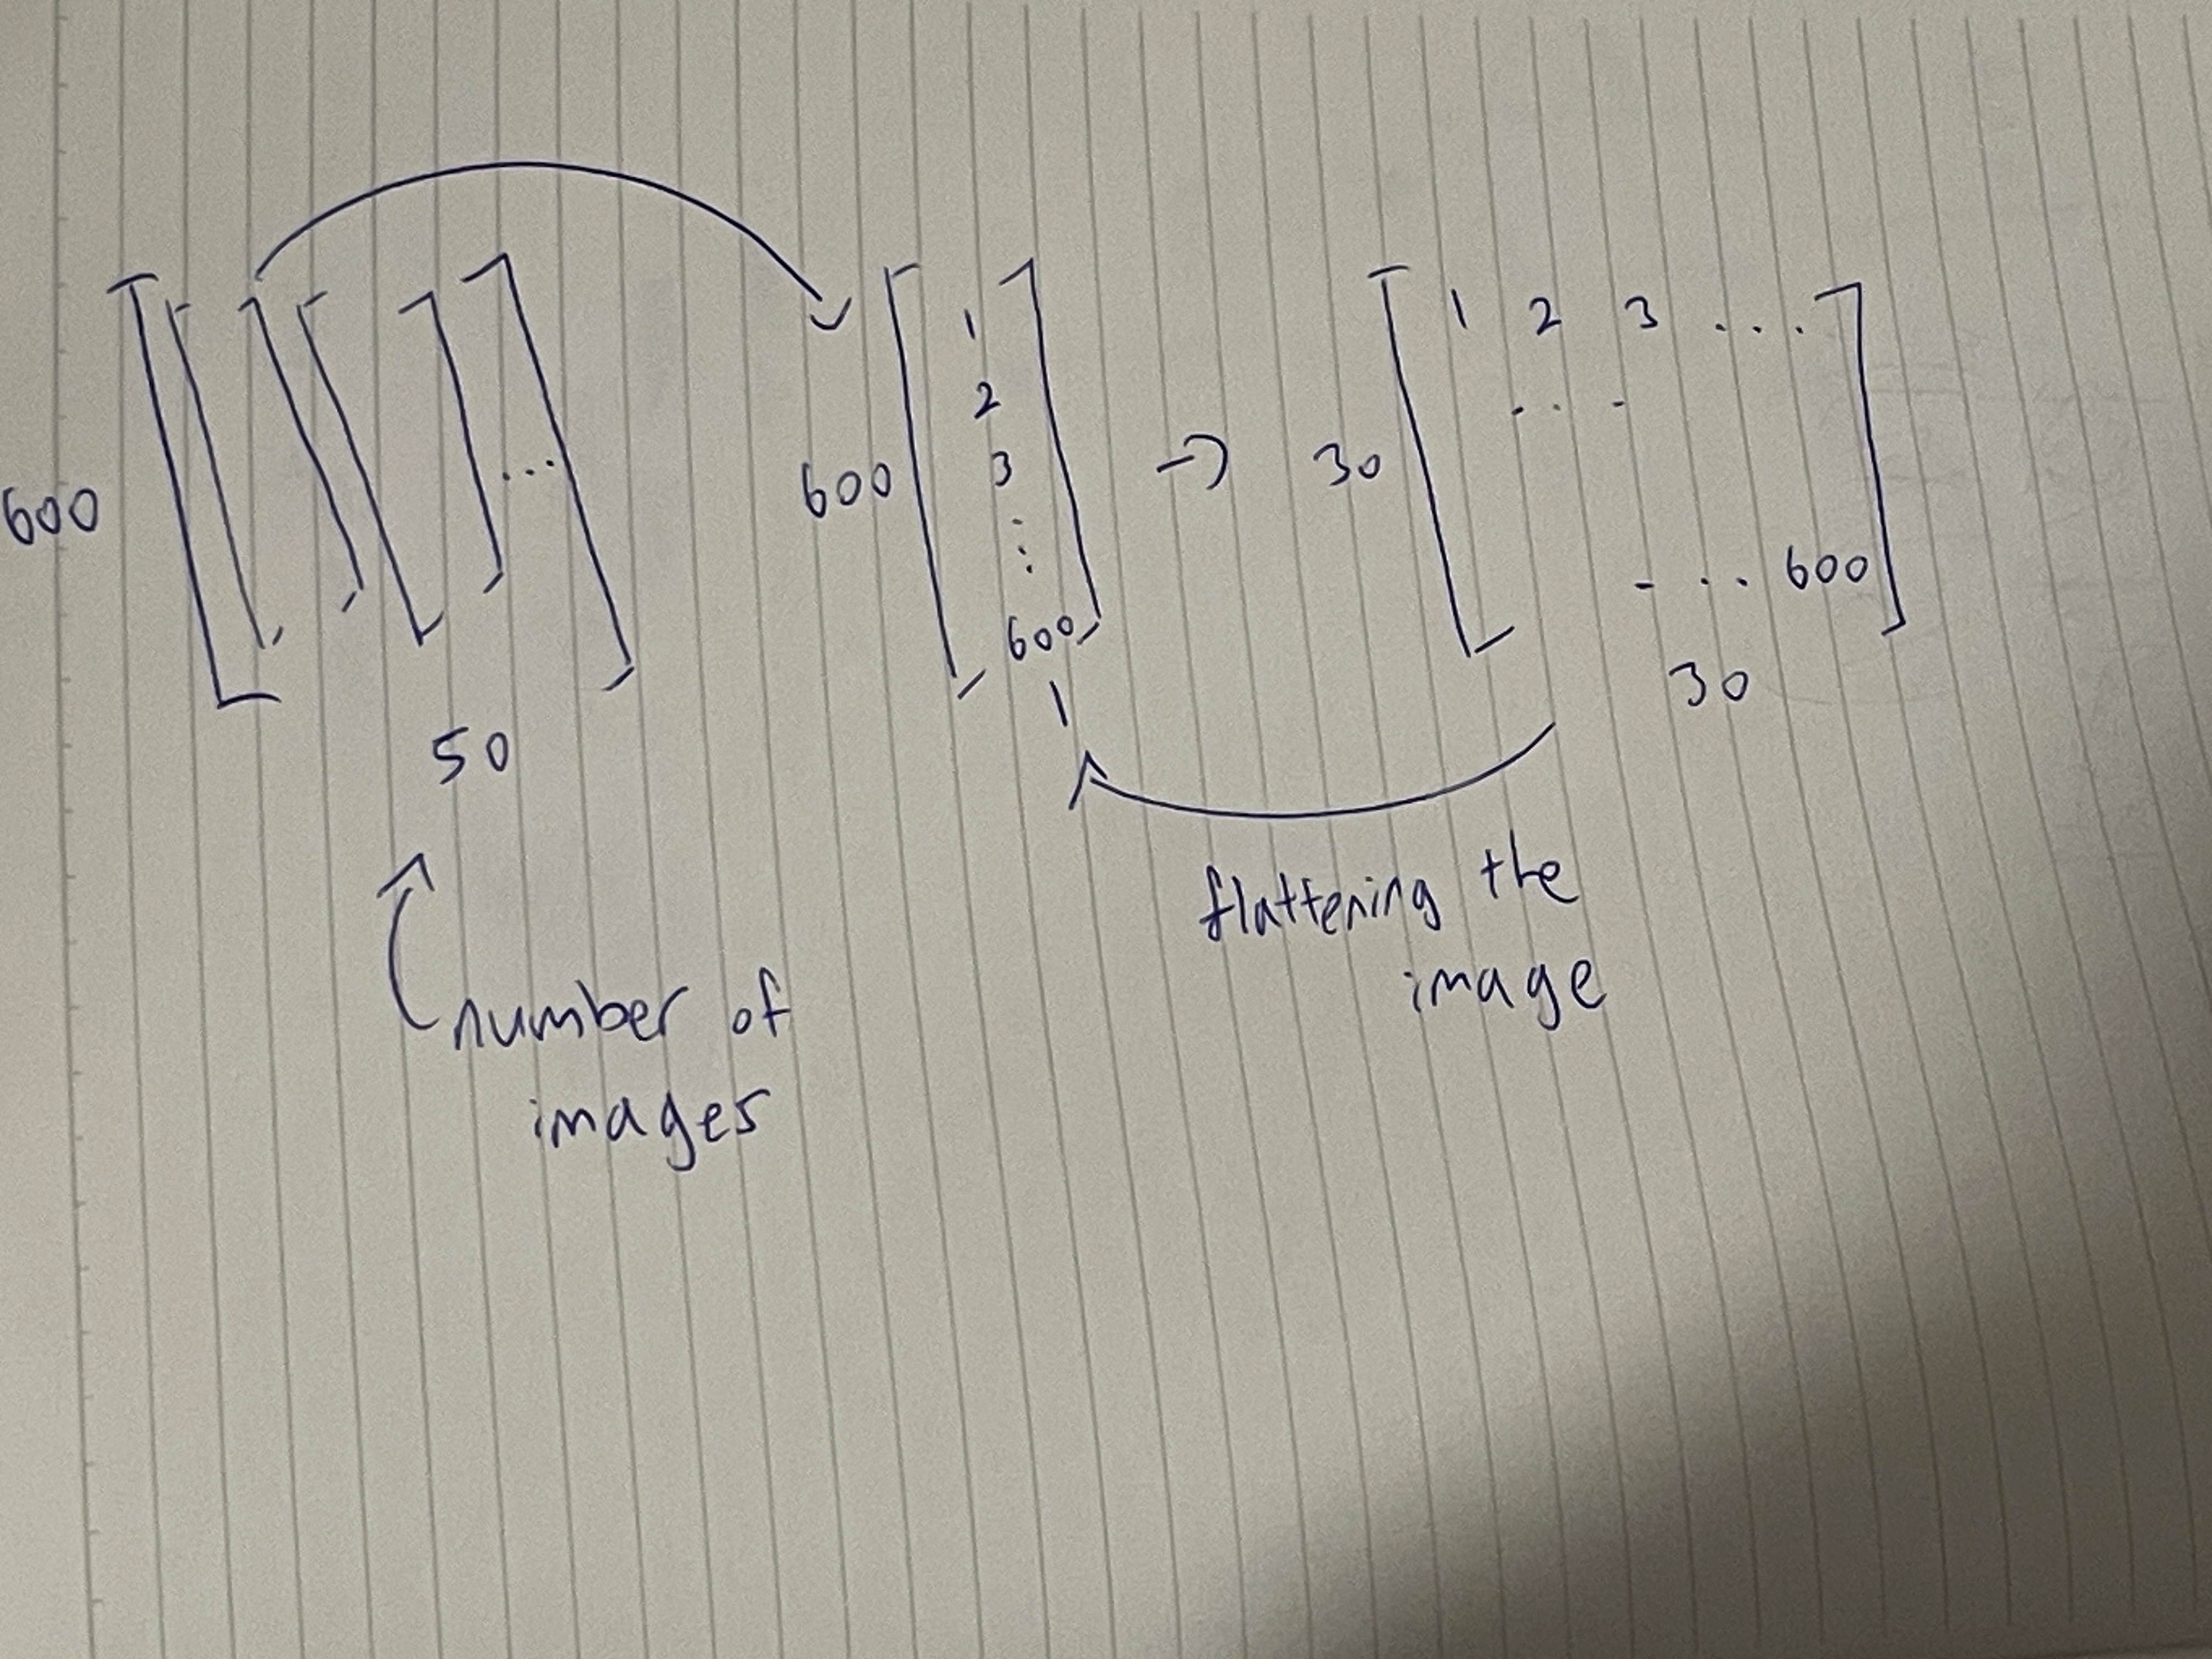 600
50
number of
images
600
1
2
3
⋮
600
1
→
30
1 2 3 ...
...
... 600
30
flattening the
image